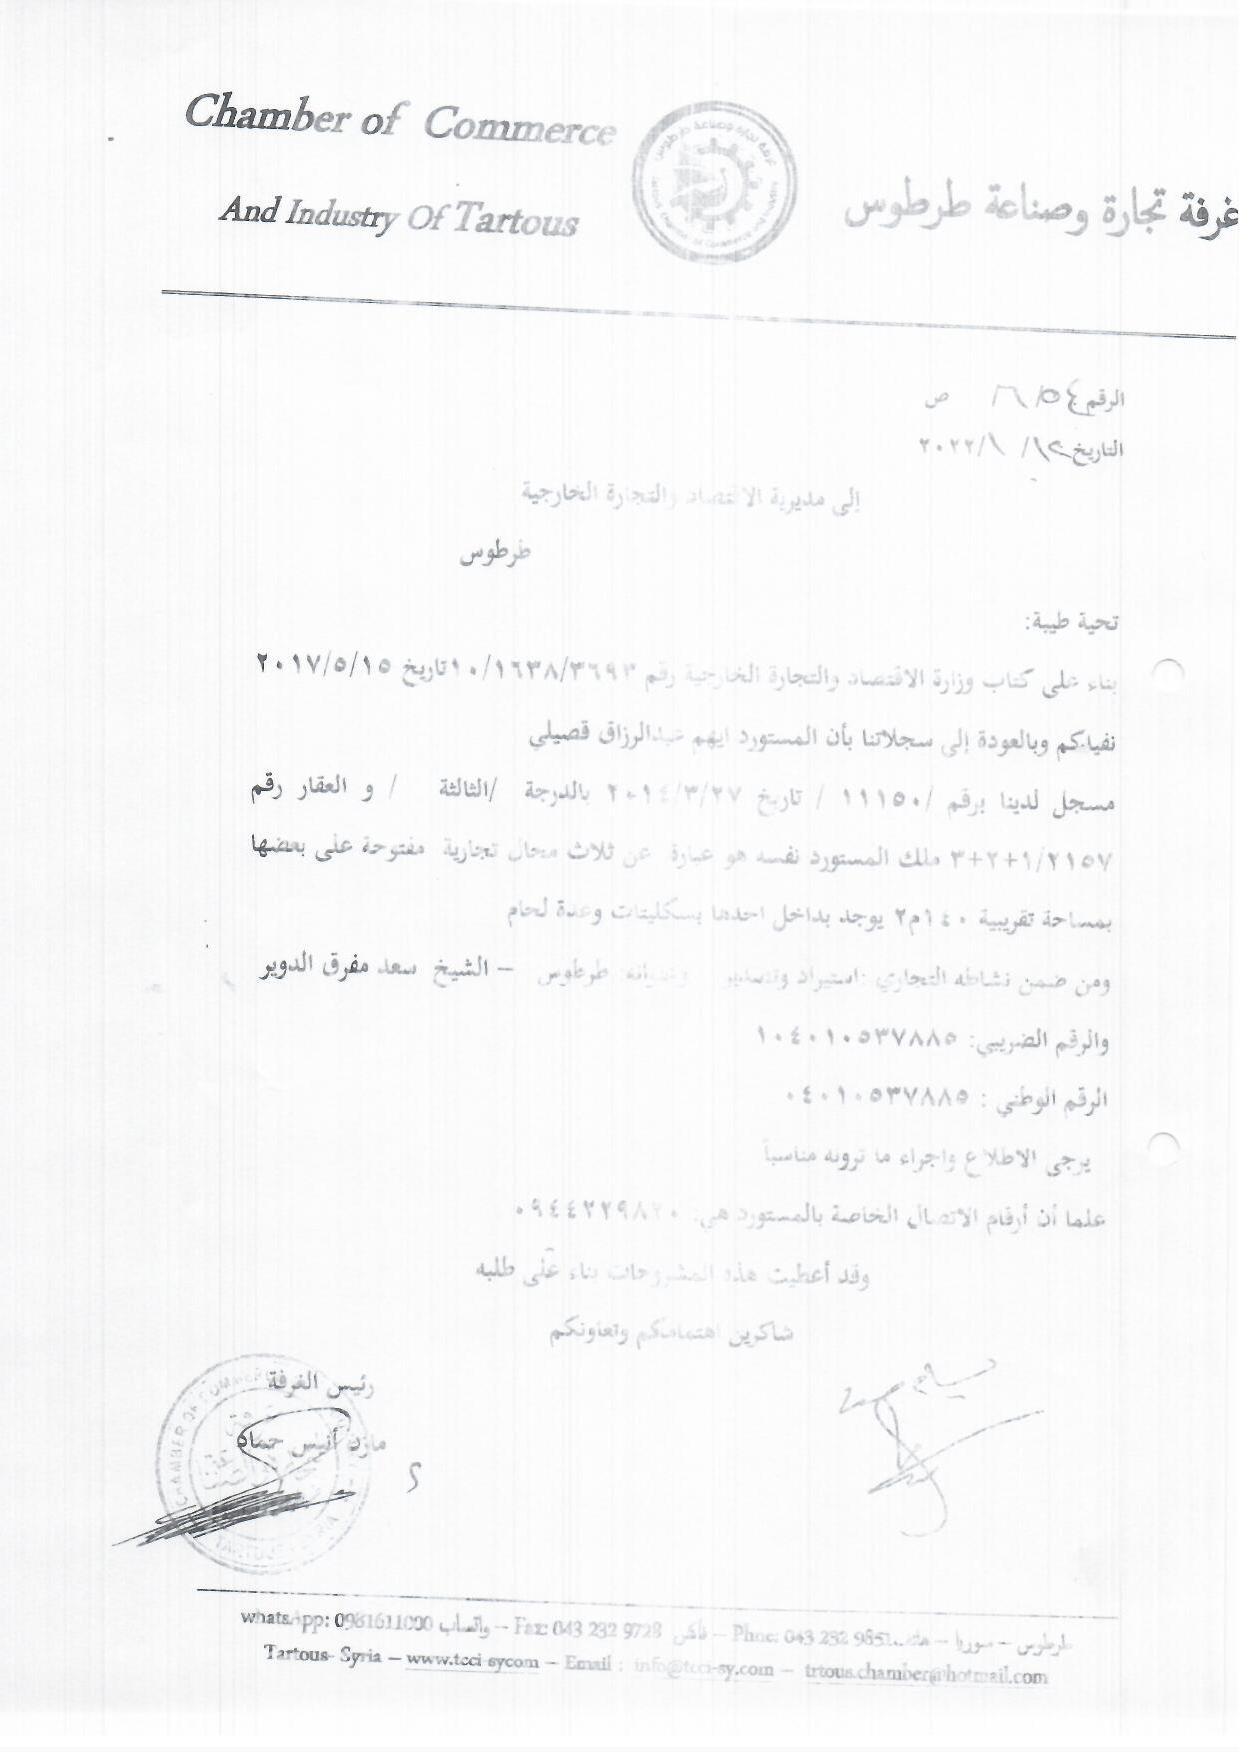 Chamber of Commerce
And Industry Of Tartous
غرفة تجارة وصناعة طرطوس
الرقم ٥٤/ ٦/ ص
التاريخ /١/ ٢٠٢٢
إلى مديرية الاقتصاد والتجارة الخارجية
طرطوس
تحية طيبة:
بناء على كتاب وزارة الاقتصاد والتجارة الخارجية رقم ١٠/١٦٣٨/٣٦٩٣تاريخ ٢٠١٧/٥/١٥
نفيدكم وبالعودة إلى سجلاتنا بأن المستورد ايهم عبدالرزاق قصيلي
مسجل لدينا برقم /١١١٥٠ / تاريخ ٢٠١٤/٣/٢٧ بالدرجة /الثالثة / و العقار رقم
٣+٢+١/٢١٥٧ ملك المستورد نفسه هو عبارة عن ثلاث محال تجارية مفتوحة على بعضها
بمساحة تقريبية ١٤٠م٢ يوجد بداخل احدها بسكليتات وعدة لحام
ومن ضمن نشاطه التجاري :استيراد وتصدير وعنوانه: طرطوس – الشيخ سعد مفرق الدوير
والرقم الضريبي: ١٠٤٠١٠٥٣٧٨٨٥
الرقم الوطني : ٠٤٠١٠٥٣٧٨٨٥
يرجى الاطلاع واجراء ما ترونه مناسباً
علما أن أرقام الاتصال الخاصة بالمستورد هي: ٠٩٤٤٢٢٩٨٢٠
وقد أعطيت هذه المشروحات بناء على طلبه
شاكرين اهتمامكم وتعاونكم
رئيس الغرفة
مازن أنيس حماد
طرطوس – سوريا – هاتف Phne: 043 232 9851 – فاكس Fax: 043 232 9728 – واتساب whatsApp: 0981611000
Tartous- Syria – www.tcci-sycom – Email : info@tcci-sy.com – trtous.chamber@hotmail.com